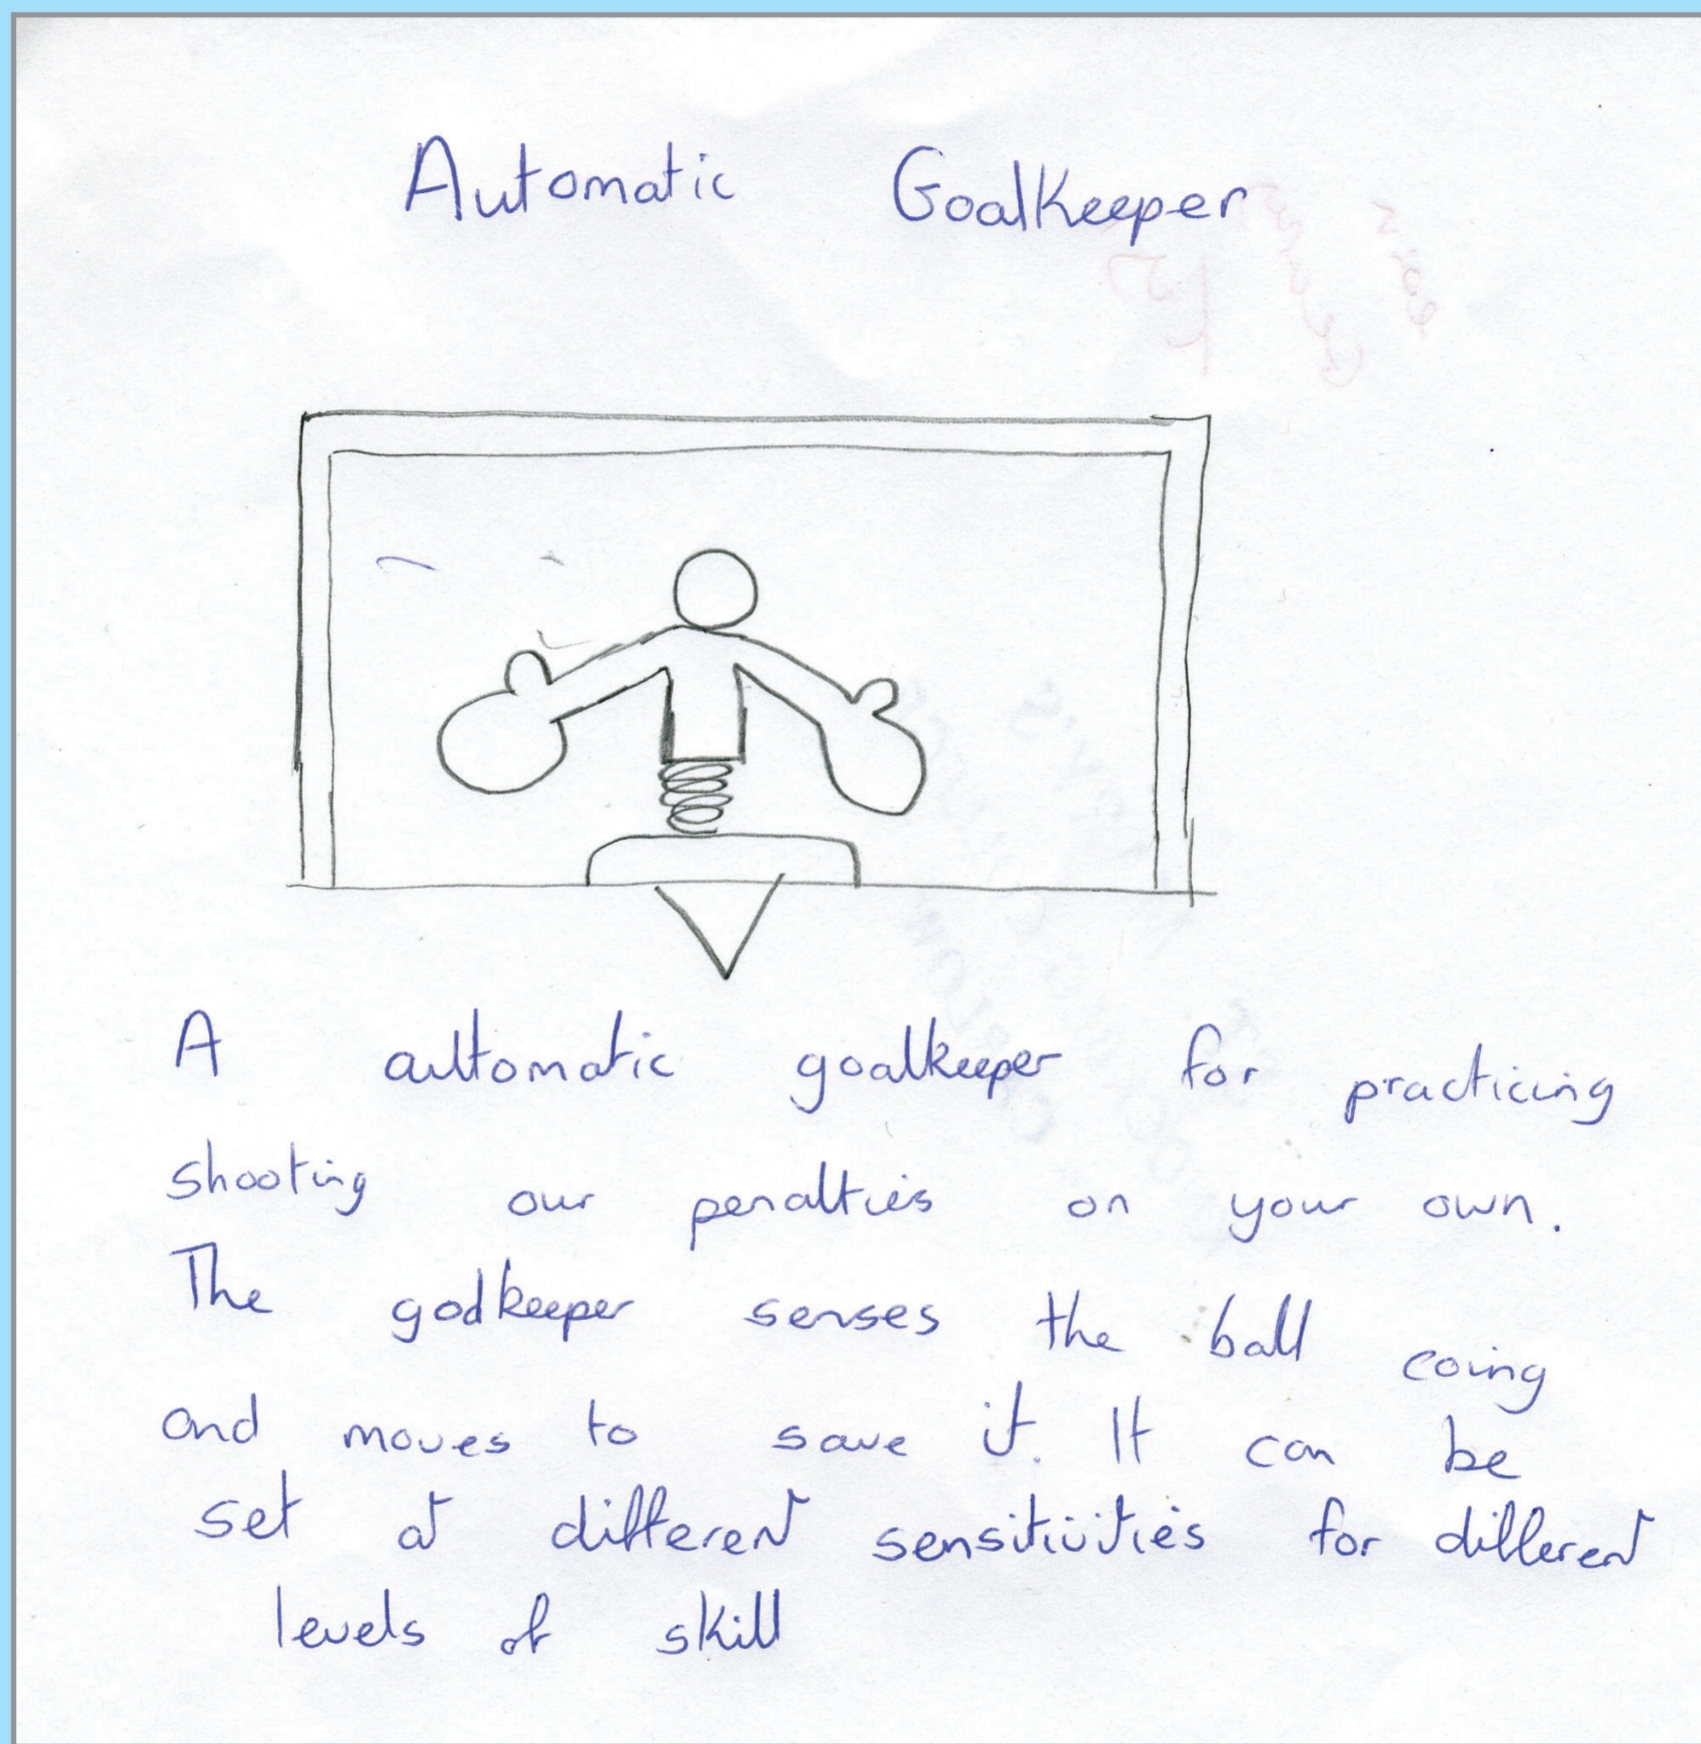 Automatic Goalkeeper
A automatic goalkeeper for practicing
shooting our penalties on your own.
The goalkeeper senses the ball coing
and moves to save it. It can be
set at different sensitivities for different
levels of skill